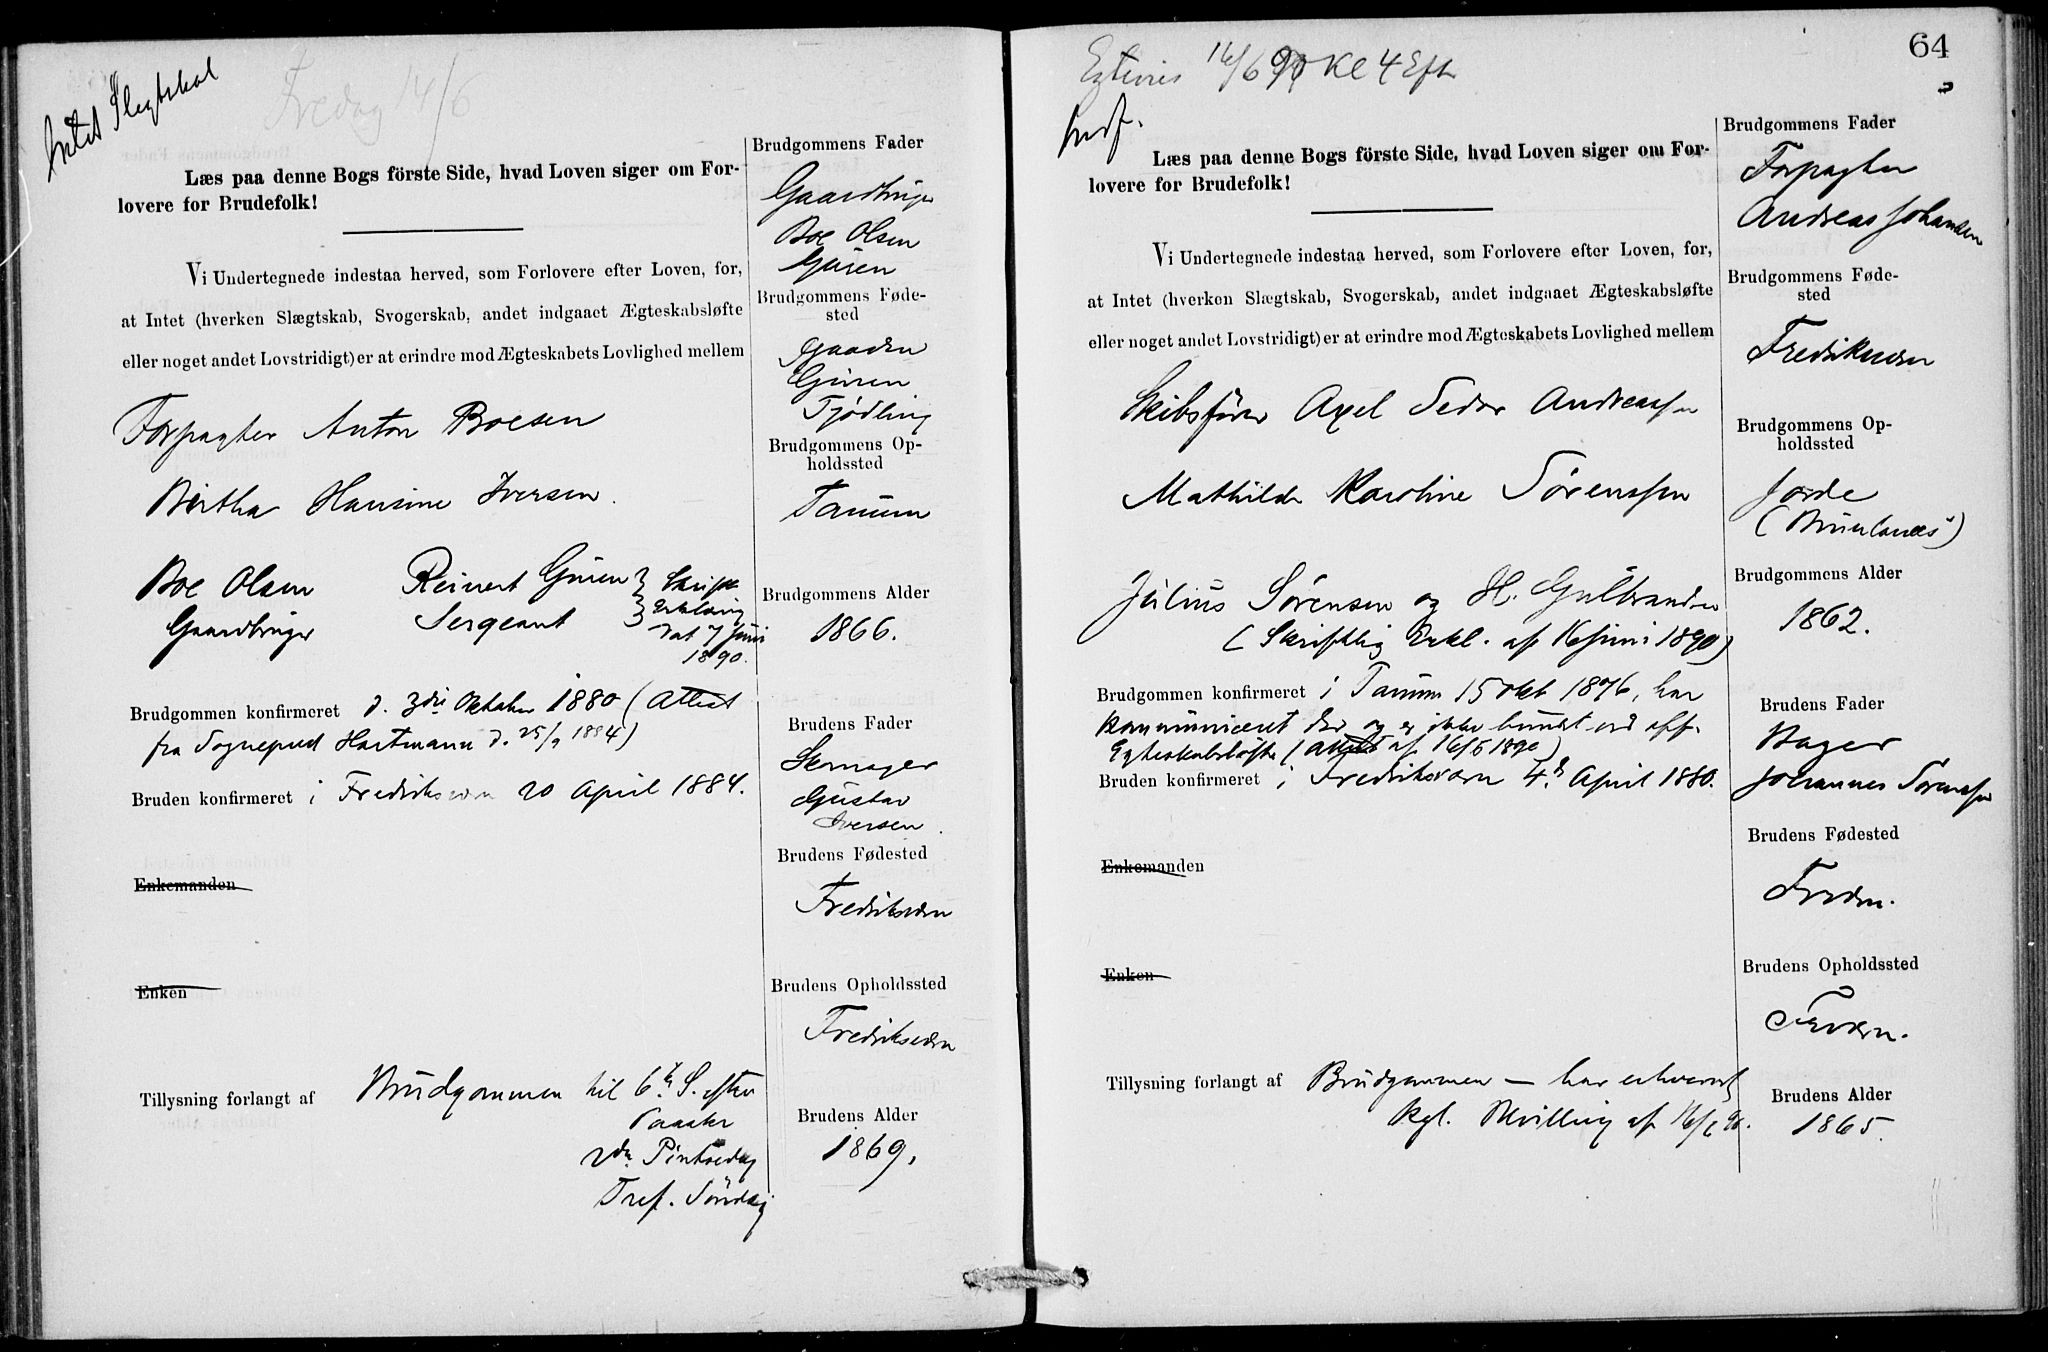 Intet Slegtskab
Fredag 14/6
Læs paa denne Bogs förste Side, hvad Loven siger om For-
lovere for Brudefolk!
Vi Undertegnede indestaa herved, som Forlovere efter Loven, for,
at Intet (hverken Slægtskab, Svogerskab, andet indgaaet Ægteskabsløfte
eller noget andet Lovstridigt) er at erindre mod Ægteskabets Lovlighed mellem
Forpagter Anton Boesen
Bertha Hansine Iversen.
Boe Olsen Reinert Guren
Gaardbruger Sergeant
Skriftl
Erklæring
dat 7 Juni
1890.
Brudgommen konfirmeret d. 3die Oktober 1880 (Attest
fra Sogneprest Hartmann d. 25/9 1884)
Bruden konfirmeret i Fredriksværn 20 April 1884.
Enkemanden
Enken
Tillysning forlangt af Brudgommen til 6te S. efter
Paaske
2den Pintsedag
Tref. Söndag
Brudgommens Fader
Gaardbruger
Boe Olsen
Guren
Brudgommens Føde-
sted
Gaarden
Guren
Tjödling
Brudgommens Op-
holdssted
Tanum
Brudgommens Alder
1866.
Brudens Fader
Gustav
Iversen.
Brudens Fødested
Fredriksværn
Brudens Opholdssted
Fredriksværn
Brudens Alder
1869.
64
16/6 90 Kl 4 Eft
Læs paa denne Bogs förste Side, hvad Loven siger om For-
lovere for Brudefolk!
Vi Undertegnede indestaa herved, som Forlovere efter Loven, for,
at Intet (hverken Slægtskab, Svogerskab, andet indgaaet Ægteskabsløfte
eller noget andet Lovstridigt) er at erindre mod Ægteskabets Lovlighed mellem
Skibsfører Axel Sedor Andreassen
Mathilde Karoline Sörenssen
Julius Sörensen og H. Gulbrandsen
(Skriftlig Erkl. af 16 Juni 1890)
Brudgommen konfirmeret i Tanum 15 Okt 1876, har
kommuniceret der og er ikke bundet ved off.
Egteskabslöfte (Attest af 16/6 1890)
Bruden konfirmeret i Fredriksværn 4de April 1880.
Enkemanden
Enken
Tillysning forlangt af Brudgommen — har erhvervet
Kgl. Bevilling af 16/6 90.
Brudgommens Fader
Forpagter
Andreas Johansen
Brudgommens Føde-
sted
Fredriksværn
Brudgommens Op-
holdssted
Jorde
(Brunlanæs)
Brudgommens Alder
1862.
Brudens Fader
Bager
Johannes Sörenssen
Brudens Fødested
Frværn.
Brudens Opholdssted
Frværn.
Brudens Alder
1865.